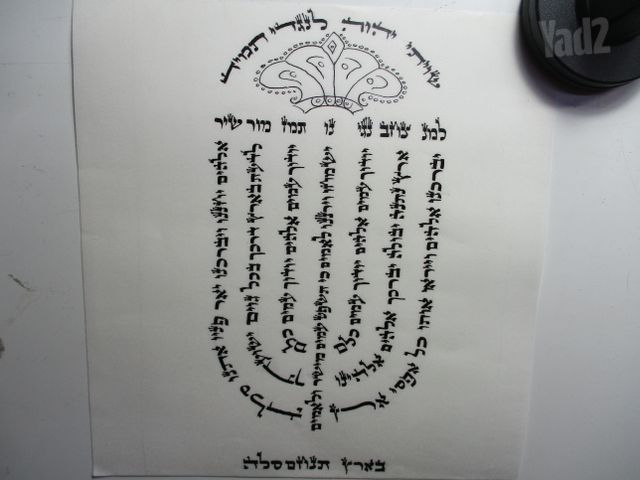 שויתי יהוה לנגדי תמיד
למנ צחב נגי נו תמז מור שיר
יברכנו אלהים וייראו אותו כל אפסי ארץ
ארץ נתנה יבולה יברכנו אלהים אלהינו
יודוך עמים אלהים יודוך עמים כלם
ישמחו וירננו לאמים כי תשפט עמים מישר ולאמים
יודוך עמים אלהים יודוך עמים כלם
לדעת בארץ דרכך בכל גוים ישועתך
אלהים יחננו ויברכנו יאר פניו אתנו סלה
בארץ תנחם סלה
Yad2